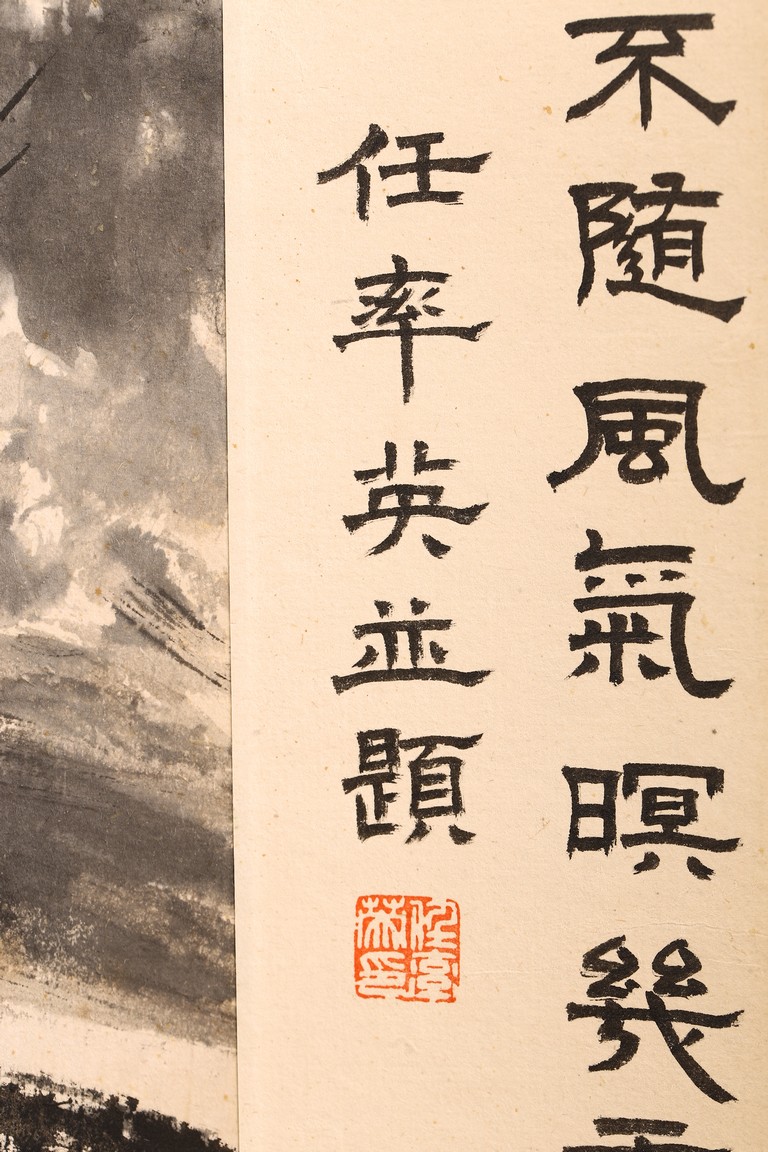 不隨風氣暝幾
任率英並題